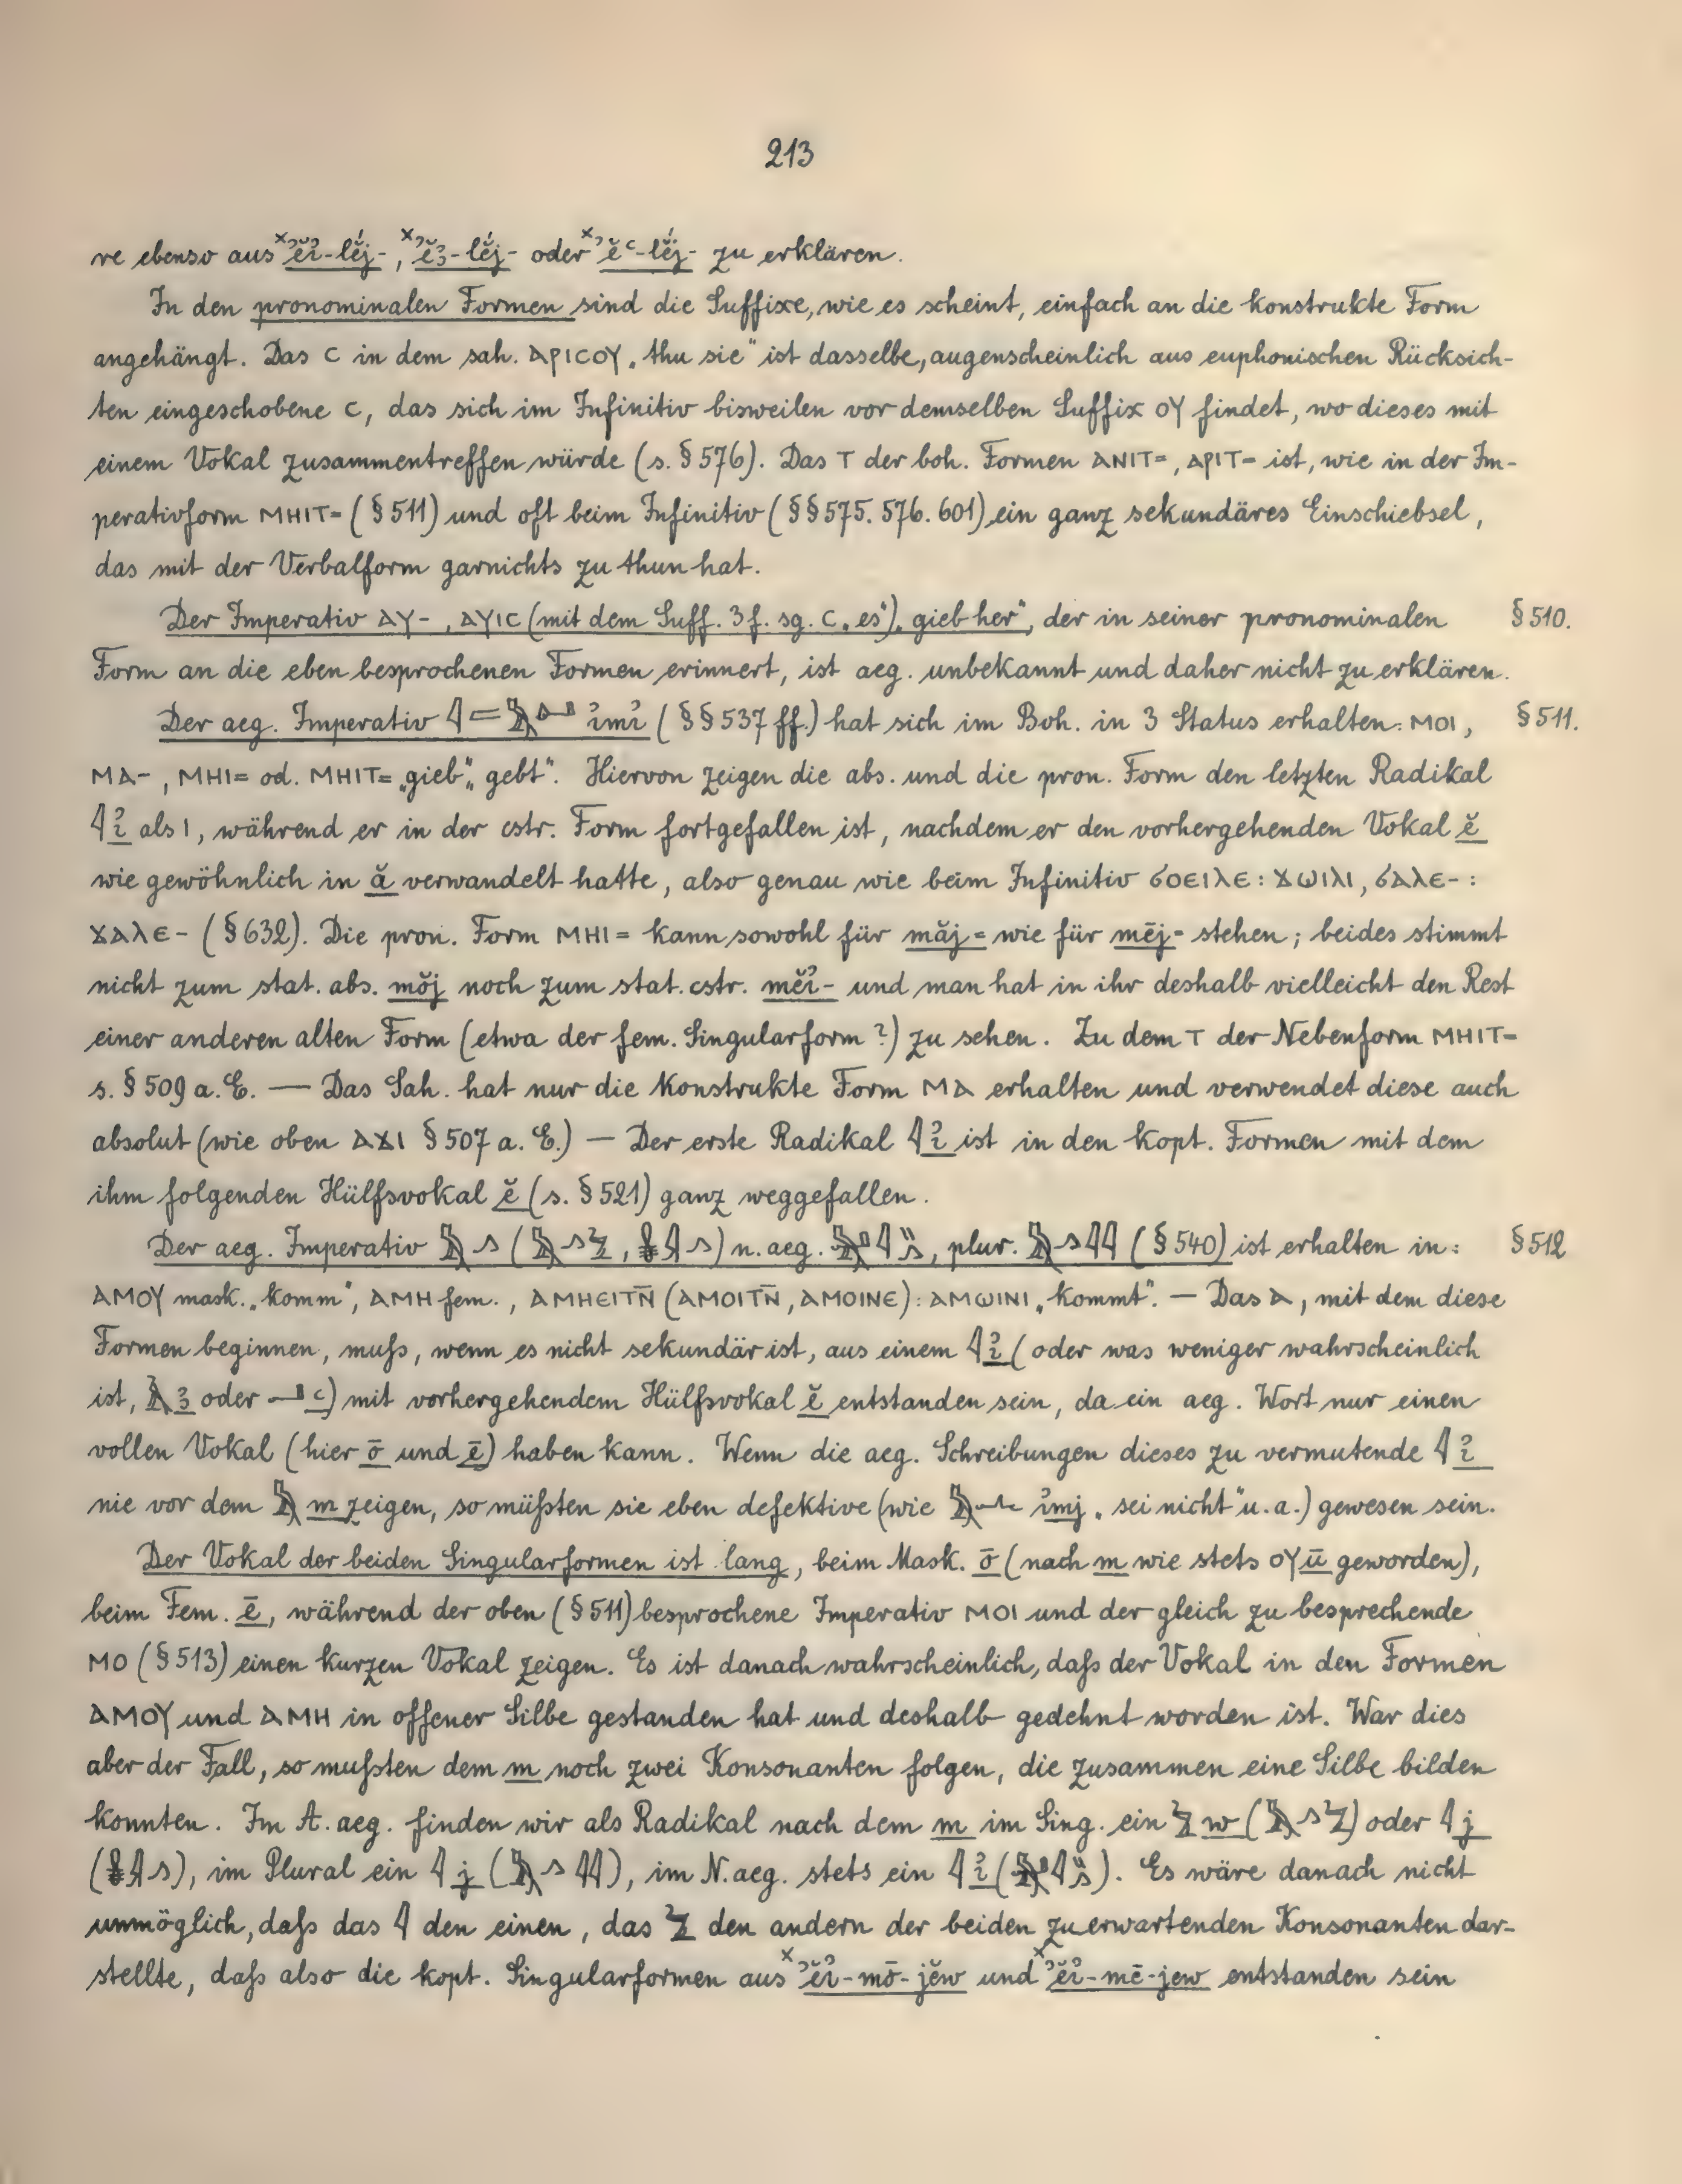 213
re ebenso aus ˣʾĕỉ-lĕ́j-, ˣʾĕꜣ-lĕ́j- oder ˣʾĕꜥ-lĕ́j- zu erklären.
In den pronominalen Formen sind die Suffixe, wie es scheint, einfach an die konstrukte Form
angehängt. Das ⲥ in dem sah. ⲁⲣⲓⲥⲟⲩ „thu sie“ ist dasselbe, augenscheinlich aus euphonischen Rücksich-
ten eingeschobene ⲥ, das sich im Infinitiv bisweilen vor demselben Suffix ⲟⲩ findet, wo dieses mit
einem Vokal zusammentreffen würde (s. § 576). Das ⲧ der boh. Formen ⲁⲛⲓⲧ=, ⲁⲣⲓⲧ= ist, wie in der Im-
perativform ⲙⲏⲓⲧ= (§ 511) und oft beim Infinitiv (§§ 575. 576. 601) ein ganz sekundäres Einschiebsel,
das mit der Verbalform garnichts zu thun hat.
Der Imperativ ⲁⲩ-, ⲁⲩⲓⲥ (mit dem Suff. 3 f. sg. ⲥ „es“) „gieb her“, der in seiner pronominalen § 510.
Form an die eben besprochenen Formen erinnert, ist aeg. unbekannt und daher nicht zu erklären.
Der aeg. Imperativ ỉmỉ (§§ 537 ff.) hat sich im Boh. in 3 Status erhalten: ⲙⲟⲓ, § 511.
ⲙⲁ-, ⲙⲏⲓ= od. ⲙⲏⲓⲧ= „gieb“, „gebt“. Hiervon zeigen die abs. und die pron. Form den letzten Radikal
𓇋 ỉ als ⲓ, während er in der cstr. Form fortgefallen ist, nachdem er den vorhergehenden Vokal ĕ
wie gewöhnlich in ă verwandelt hatte, also genau wie beim Infinitiv ϭⲟⲉⲓⲗⲉ : ϫⲱⲓⲗⲓ, ϭⲁⲗⲉ- :
ϫⲁⲗⲉ- (§ 632). Die pron. Form ⲙⲏⲓ= kann sowohl für măj= wie für mēj= stehen; beides stimmt
nicht zum stat. abs. mŏj noch zum stat. cstr. mĕỉ- und man hat in ihr deshalb vielleicht den Rest
einer anderen alten Form (etwa der fem. Singularform?) zu sehen. Zu dem ⲧ der Nebenform ⲙⲏⲓⲧ=
s. § 509 a. E. — Das Sah. hat nur die konstrukte Form ⲙⲁ erhalten und verwendet diese auch
absolut (wie oben ⲁϫⲓ § 507 a. E.) — Der erste Radikal 𓇋 ỉ ist in den kopt. Formen mit dem
ihm folgenden Hülfsvokal ĕ (s. § 521) ganz weggefallen.
Der aeg. Imperativ 𓅓𓂻 (𓅓𓂻𓅱, ) n. aeg. , plur. 𓅓𓂻𓇋𓇋 (§ 540) ist erhalten in: § 512
ⲁⲙⲟⲩ mask. „komm“, ⲁⲙⲏ fem., ⲁⲙⲏⲉⲓⲧⲛ̄ (ⲁⲙⲟⲓⲧⲛ̄, ⲁⲙⲟⲓⲛⲉ) : ⲁⲙⲱⲓⲛⲓ „kommt“. — Das ⲁ, mit dem diese
Formen beginnen, muſs, wenn es nicht sekundär ist, aus einem 𓇋 ỉ (oder was weniger wahrscheinlich
ist, 𓄿 ꜣ oder 𓂝 ꜥ) mit vorhergehendem Hülfsvokal ĕ entstanden sein, da ein aeg. Wort nur einen
vollen Vokal (hier ō und ē) haben kann. Wenn die aeg. Schreibungen dieses zu vermutende 𓇋 ỉ
nie vor dem 𓅓 m zeigen, so müſsten sie eben defektive (wie 𓅓𓂜 ỉmj „sei nicht“ u. a.) gewesen sein.
Der Vokal der beiden Singularformen ist lang, beim Mask. ō (nach m wie stets ⲟⲩ ū geworden),
beim Fem. ē, während der oben (§ 511) besprochene Imperativ ⲙⲟⲓ und der gleich zu besprechende
ⲙⲟ (§ 513) einen kurzen Vokal zeigen. Es ist danach wahrscheinlich, daſs der Vokal in den Formen
ⲁⲙⲟⲩ und ⲁⲙⲏ in offener Silbe gestanden hat und deshalb gedehnt worden ist. War dies
aber der Fall, so muſsten dem m noch zwei Konsonanten folgen, die zusammen eine Silbe bilden
konnten. Im A. aeg. finden wir als Radikal nach dem m im Sing. ein 𓅱 w (𓅓𓂻𓅱) oder 𓇋 j
( ), im Plural ein 𓇋 j (𓅓𓂻𓇋𓇋), im N. aeg. stets ein 𓇋 ỉ ( ). Es wäre danach nicht
unmöglich, daſs das 𓇋 den einen, das 𓅱 den andern der beiden zu erwartenden Konsonanten dar-
stellte, daſs also die kopt. Singularformen aus ˣʾĕỉ-mō-jĕw und ˣʾĕỉ-mē-jew entstanden sein